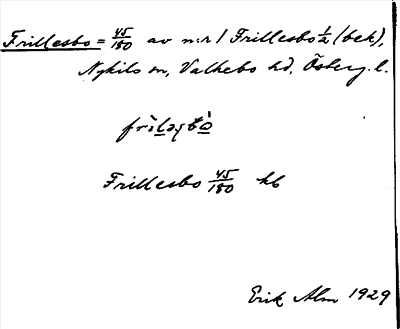 Frillesbo = 45/180 av n:r 1 Frillesbo 1/2 (bek),
Nykils sn, Valkebo hd, Österg. l.
Frillesbo 45/180 kb
Erik Alm 1929